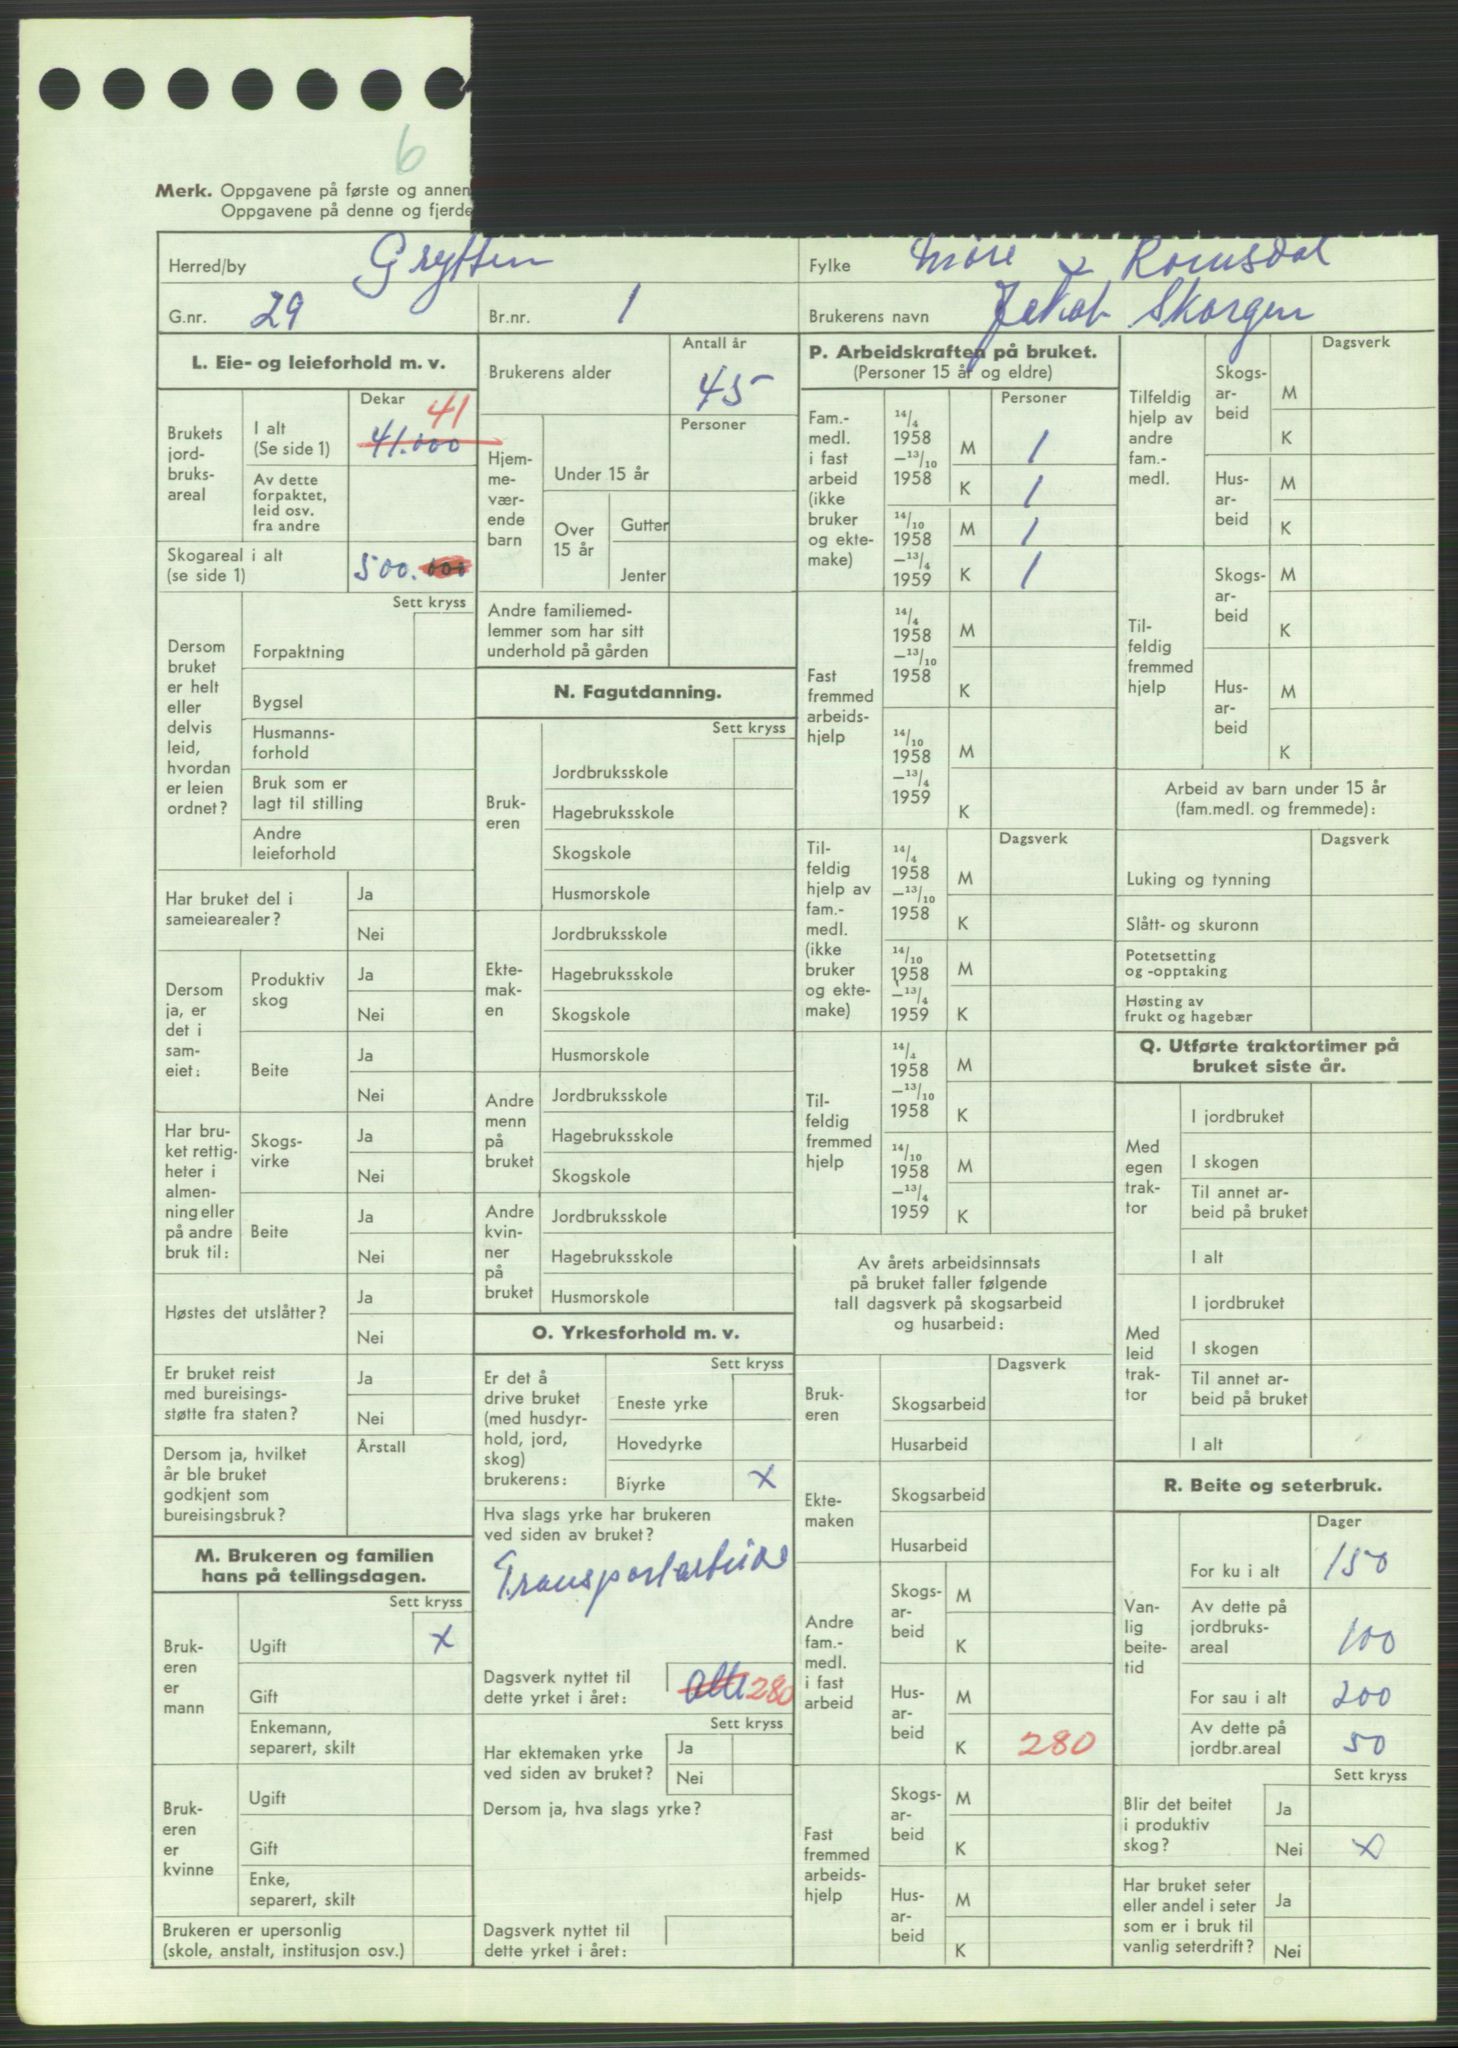 6
Merk. Oppgavene på første og annen
Oppgavene på denne og fjerde
Herred/by Grytten Fylke Møre & Romsdal
G.nr. 29 Br.nr. 1 Brukerens navn Jakob Skorgen
L. Eie- og leieforhold m. v.
Dekar
Brukets jord- bruks- areal
I alt (Se side 1) 41.000 41
Av dette forpaktet, leid osv. fra andre
Skogareal i alt (se side 1) 500.000
Sett kryss
Dersom bruket er helt eller delvis leid, hvordan er leien ordnet?
Forpaktning
Bygsel
Husmanns- forhold
Bruk som er lagt til stilling
Andre leieforhold
Har bruket del i sameiearealer?
Ja
Nei
Dersom ja, er det i sam- eiet:
Produktiv skog
Ja
Nei
Beite
Ja
Nei
Har bru- ket rettig- heter i almen- ning eller på andre bruk til:
Skogs- virke
Ja
Nei
Beite
Ja
Nei
Høstes det utslåtter?
Ja
Nei
Er bruket reist med bureisings- støtte fra staten?
Ja
Nei
Dersom ja, hvilket år ble bruket godkjent som bureisingsbruk?
Årstall
M. Brukeren og familien hans på tellingsdagen.
Sett kryss
Bruk- eren er mann
Ugift x
Gift
Enkemann, separert, skilt
Bruk- eren er kvinne
Ugift
Gift
Enke, separert, skilt
Brukeren er upersonlig (skole, anstalt, institusjon osv.)
Antall år
Brukerens alder 45
Personer
Hjem- me- vær- ende barn
Under 15 år
Over 15 år
Gutter
Jenter
Andre familiemed- lemmer som har sitt underhold på gården
N. Fagutdanning.
Sett kryss
Bruk- eren
Jordbruksskole
Hagebruksskole
Skogskole
Husmorskole
Ekte- mak- en
Jordbruksskole
Hagebruksskole
Skogskole
Husmorskole
Andre menn på bruket
Jordbruksskole
Hagebruksskole
Skogskole
Andre kvin- ner på bruket
Jordbruksskole
Hagebruksskole
Husmorskole
O. Yrkesforhold m. v.
Sett kryss
Er det å drive bruket (med husdyr- hold, jord, skog) brukerens:
Eneste yrke
Hovedyrke
Biyrke x
Hva slags yrke har brukeren ved siden av bruket?
Transportarbeide
Dagsverk nyttet til dette yrket i året: Alle 280
Sett kryss
Har ektemaken yrke ved siden av bruket?
Ja
Nei
Dersom ja, hva slags yrke?
Dagsverk nyttet til dette yrket i året:
P. Arbeidskraften på bruket.
(Personer 15 år og eldre)
Personer
Fam.- medl. i fast arbeid (ikke bruker og ekte- make)
14/4 1958 —13/10 1958
M 1
K 1
14/10 1958 —13/4 1959
M 1
K 1
Fast fremmed arbeids- hjelp
14/4 1958 —13/10 1958
M
K
14/10 1958 —13/4 1959
M
K
Dagsverk
Til- feldig hjelp av fam.- medl. (ikke bruker og ekte- make)
14/4 1958 —13/10 1958
M
K
14/10 1958 —13/4 1959
M
K
Til- feldig fremmed hjelp
14/4 1958 —13/10 1958
M
K
14/10 1958 —13/4 1959
M
K
Av årets arbeidsinnsats
på bruket faller følgende
tall dagsverk på skogsarbeid
og husarbeid:
Dagsverk
Bruk- eren
Skogsarbeid
Husarbeid
Ekte- maken
Skogsarbeid
Husarbeid
Andre fam.- medl. i fast arbeid
Skogs- ar- beid
M
K
Hus- ar- beid
M
K 280
Fast fremmed arbeids- hjelp
Skogs- ar- beid
M
K
Hus- ar- beid
M
K
Dagsverk
Tilfeldig hjelp av andre fam.- medl.
Skogs- ar- beid
M
K
Hus- ar- beid
M
K
Til- feldig fremmed hjelp
Skogs- ar- beid
M
K
Hus- ar- beid
M
K
Arbeid av barn under 15 år
(fam.medl. og fremmede):
Dagsverk
Luking og tynning
Slått- og skuronn
Potetsetting og -opptaking
Høsting av frukt og hagebær
Q. Utførte traktortimer på bruket siste år.
Med egen trak- tor
I jordbruket
I skogen
Til annet ar- beid på bruket
I alt
Med leid trak- tor
I jordbruket
I skogen
Til annet ar- beid på bruket
I alt
R. Beite og seterbruk.
Dager
Van- lig beite- tid
For ku i alt 150
Av dette på jordbruks- areal 100
For sau i alt 200
Av dette på jordbr.areal 50
Sett kryss
Blir det beitet i produktiv skog?
Ja
Nei x
Har bruket seter eller andel i seter som er i bruk til vanlig seterdrift?
Ja
Nei